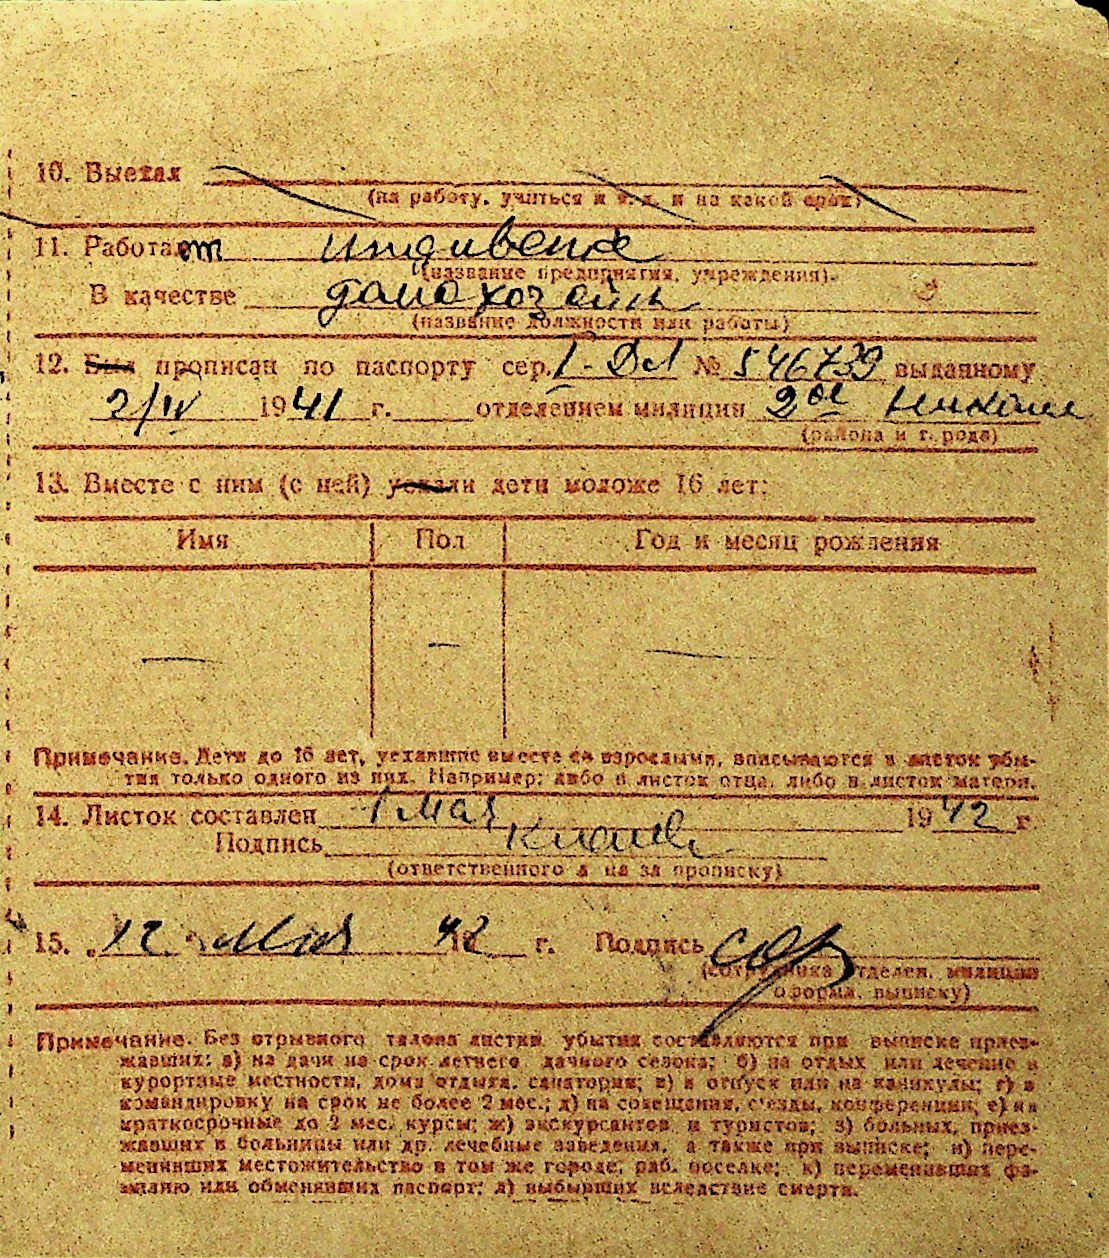 10. Выехал
(на работу, учиться и т. д. и на какой срок)
11. Работает иждивенка
(название предприятия, учреждения).
В качестве домохозяйка
(название должности или работы)
12. Был прописан по паспорту сер. № 546739 выданному
2/IV 1941 г. отделением милиции 2ое
(района и города)
13. Вместе с ним (с ней) уехали дети моложе 16 лет:
Имя Пол Год и месяц рождения
— — —
Примечание. Дети до 16 лет, уехавшие вместе со взрослыми, вписываются в листок убы-
тия только одного из них. Например: либо в листок отца, либо в листок матери.
14. Листок составлен 1 мая 1942 г.
Подпись
(ответственного л на за прописку)
15. „12 " мая 42 г. Подпись
(сотрудника отделен. милиции
оформл. выписку)
Примечание. Без отрывного талона листки убытия составляются при выписке приез-
жавших: а) на дачи на срок летнего дачного сезона; б) на отдых или лечение в
курортные местности, дома отдыха, санатории; в) в отпуск или на каникулы; г) в
командировку на срок не более 2 мес.; д) на совещания, с'езды, конференции; е) на
краткосрочные до 2 мес. курсы; ж) экскурсантов и туристов; з) больных, приез-
жавших в больницы или др. лечебные заведения, а также при выписке; и) пере-
менивших местожительство в том же городе, раб. поселке; к) переменивших фа-
милию или обменявших паспорт; л) выбывших вследствие смерти.